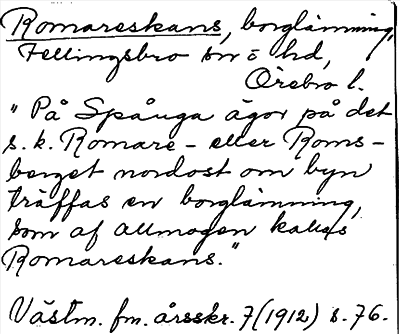 Romareskans, borglämning,
Fellingsbro sn o hd,
Örebro l.
"På Spånga ägor på det
s.k. Romare- eller Roms-
berget nordost om byn
träffas en borglämning,
som af allmogen kallas
Romareskans."
Västm. fm. årsskr. 7(1912) s. 76.